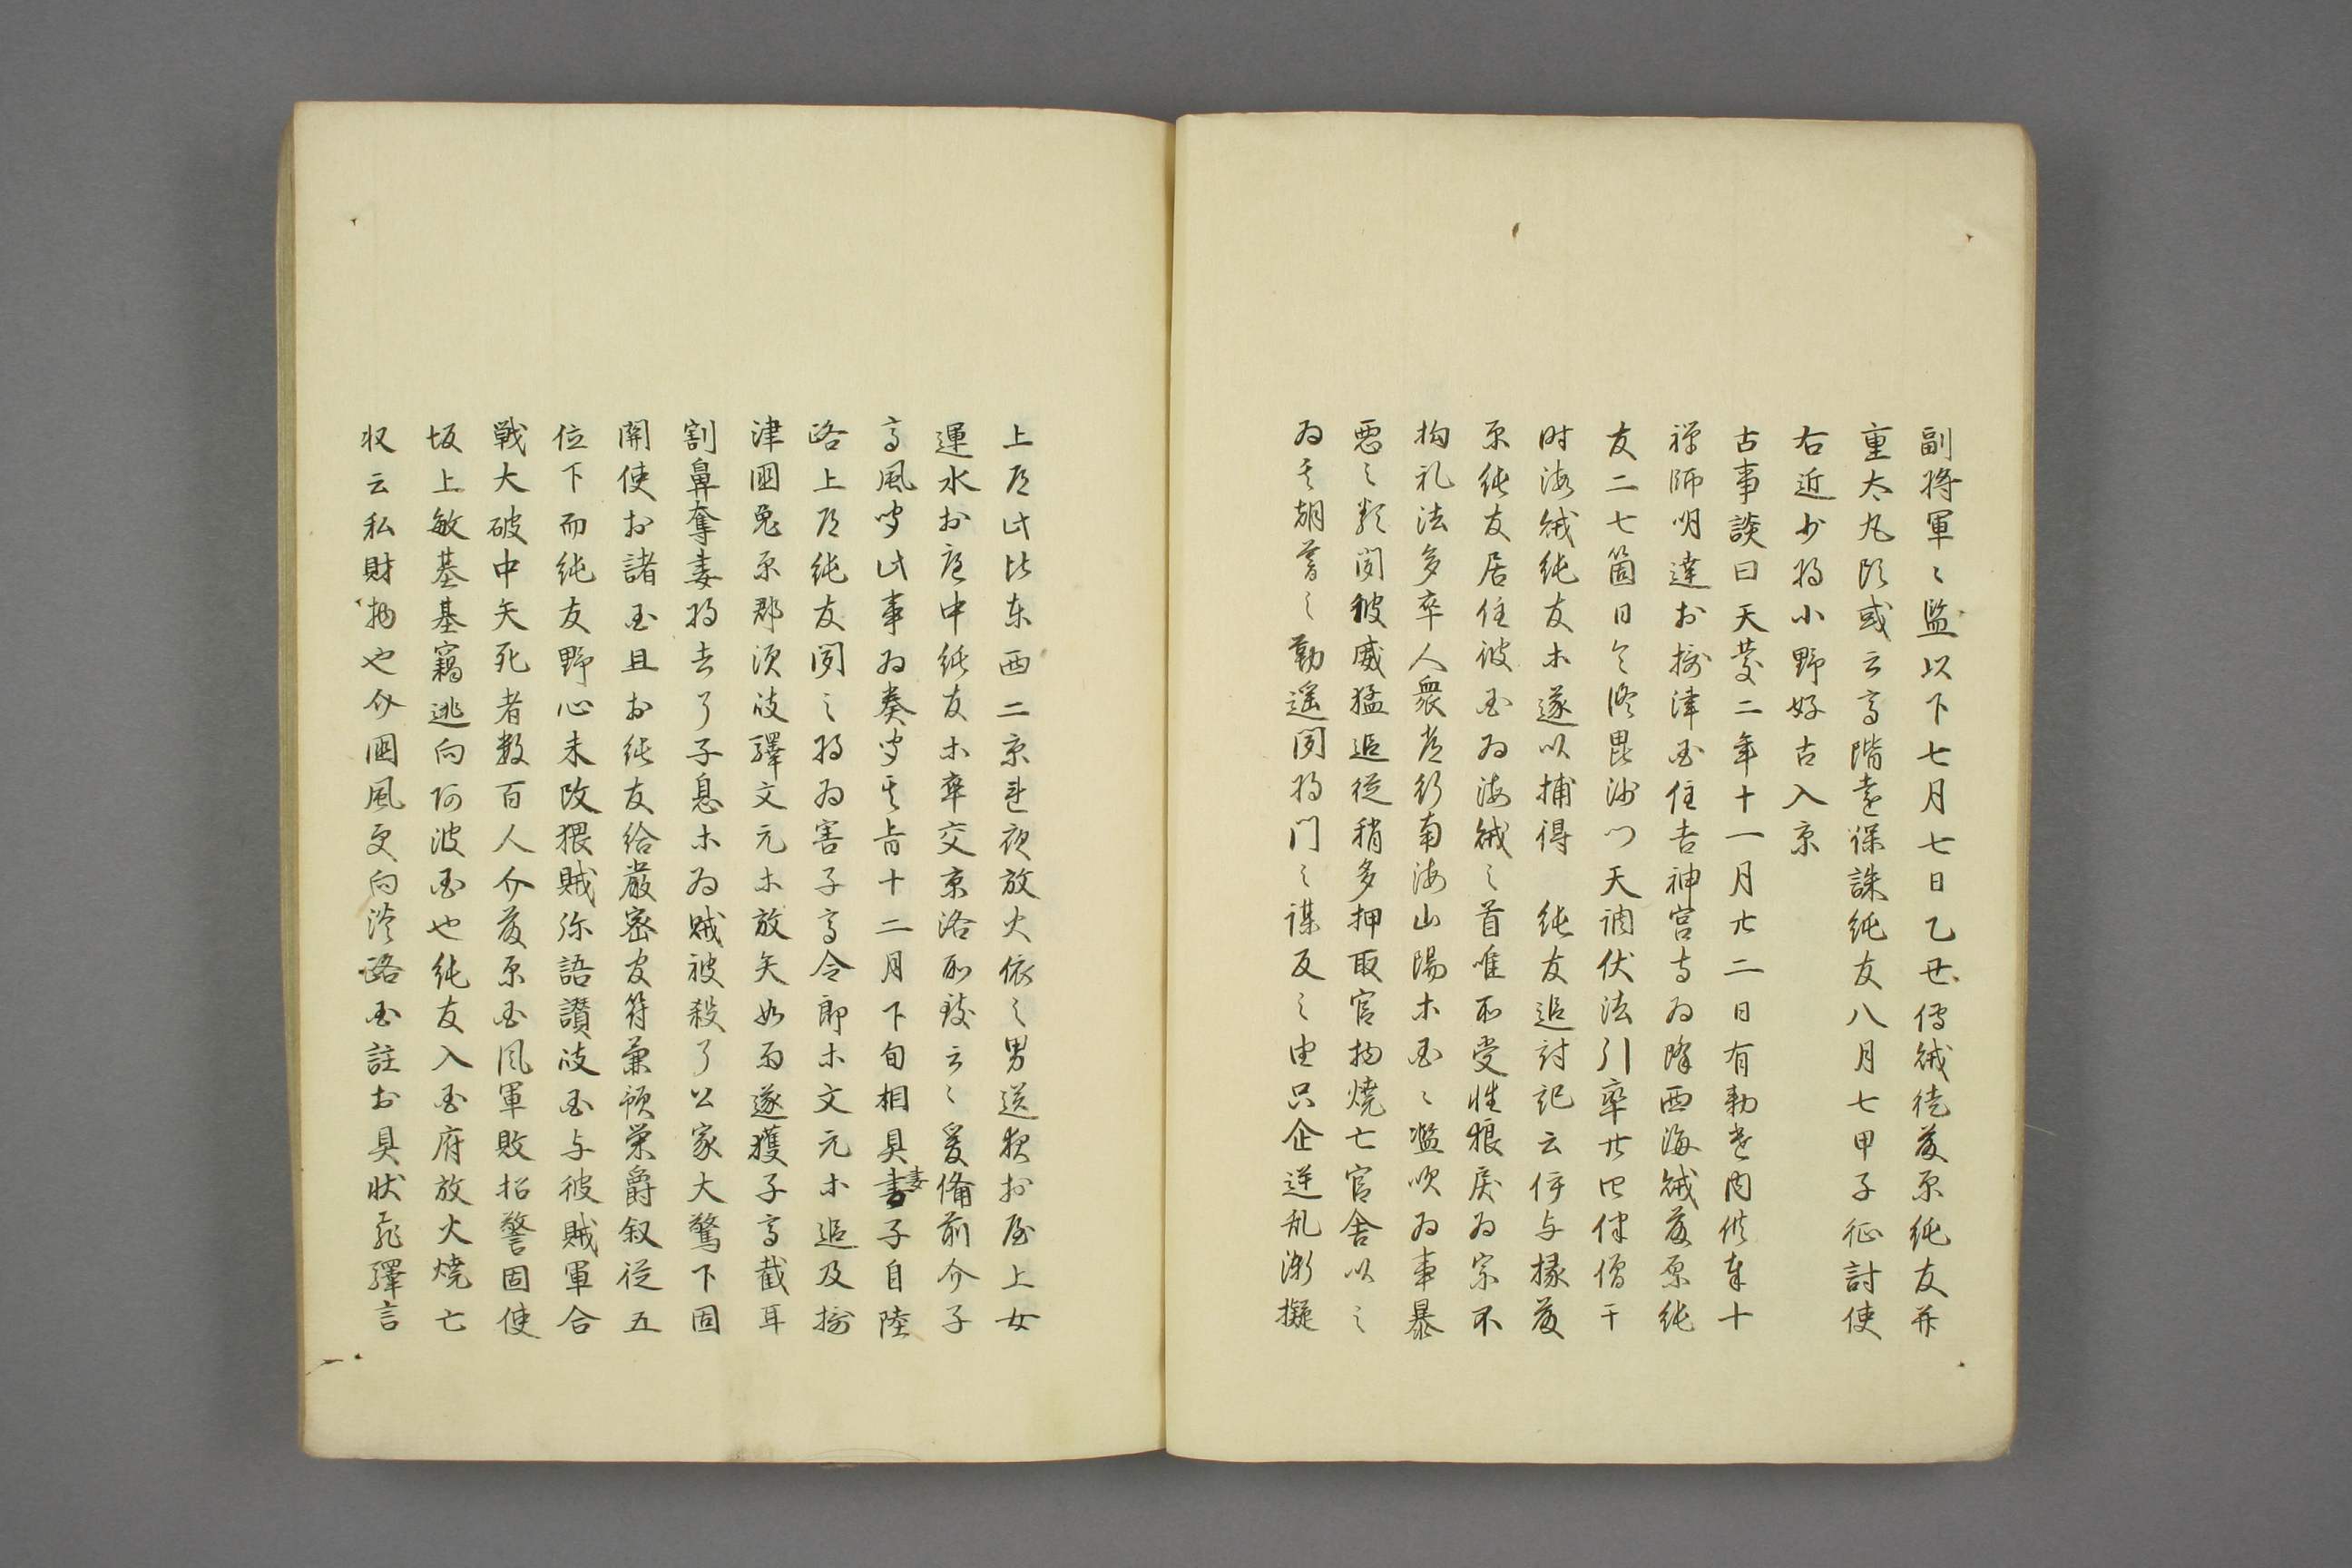 副将軍〻監以下七月七日乙丑傳賊徒藤原純友并
重太丸頭或云高階遠保誅純友八月七甲子征討使
右近少将小野好古入京
古事談曰天慶二年十一月廿二日有勅遣内供奉十
禅師明達於摂津国住吉神宮寺為降西海賊藤原純
友二七箇日令修毘沙門天調伏法引率廿四伴僧干
時海賊純友ホ遂以捕得　純友追討記云伊与掾藤
原純友居住彼国為海賊之首唯所受性狼戻為宗不
拘礼法多率人衆常行南海山陽ホ国〻濫吹為事暴
悪之類聞彼威猛追従稍多押取官物焼亡官舎以之
為其朝暮之勤遥聞将門之謀反之由只企逆乱漸擬
上道此比東西二京連夜放火依之男送夜於屋上女
運水於庭中純友ホ率交京洛所致云〻爰備前介子
高風聞此事為奏聞其旨十二月下旬相具妻子自陸
路上道純友聞之将為害子高令郎ホ文元ホ追及摂
津國兎原郡須岐驛文元ホ放矢如雨遂獲子高截耳
割鼻奪妻将去了子息ホ為賊被殺了公家大驚下固
関使於諸国且於純友給嚴密官符兼預栄爵叙従五
位下而純友野心未改猥賊弥語讃岐国与彼賊軍合
戦大破中矢死者数百人介藤原国風軍敗招警固使
坂上敏基基竊逃向阿波国也純友入国府放火焼亡
収云私財物也介國風更向淡路国註於具状飛驛言